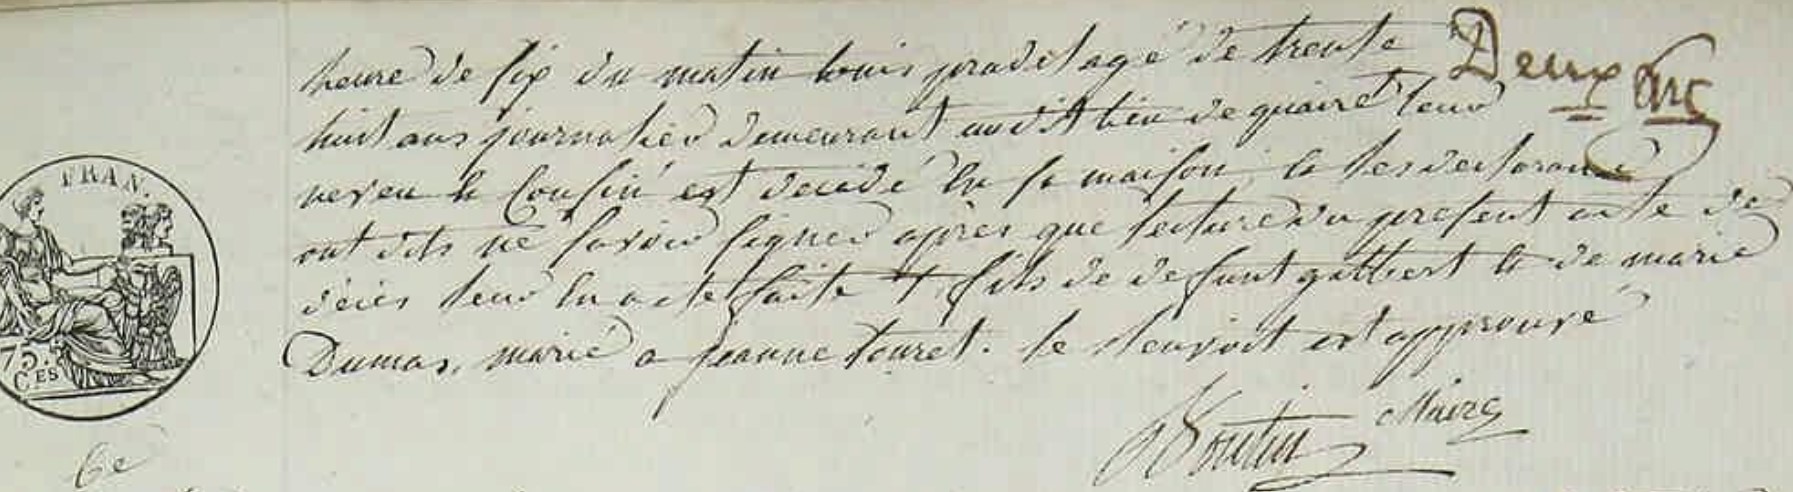 heure de six du matin louis pradet agé de trente
huit ans journalier demeurant audit lieu de quaire leur
neveu et Cousin est décédé En sa maison, et les declarants
ont dits ne savoir signer après que lecture du present acte de
décès leur En a ete faite + fils de defunt gilbert et de marie
Dumas, marié a jeanne touret. le renvoit est approuvé
Maire
Deux
FRAN.
75.
CES
6e